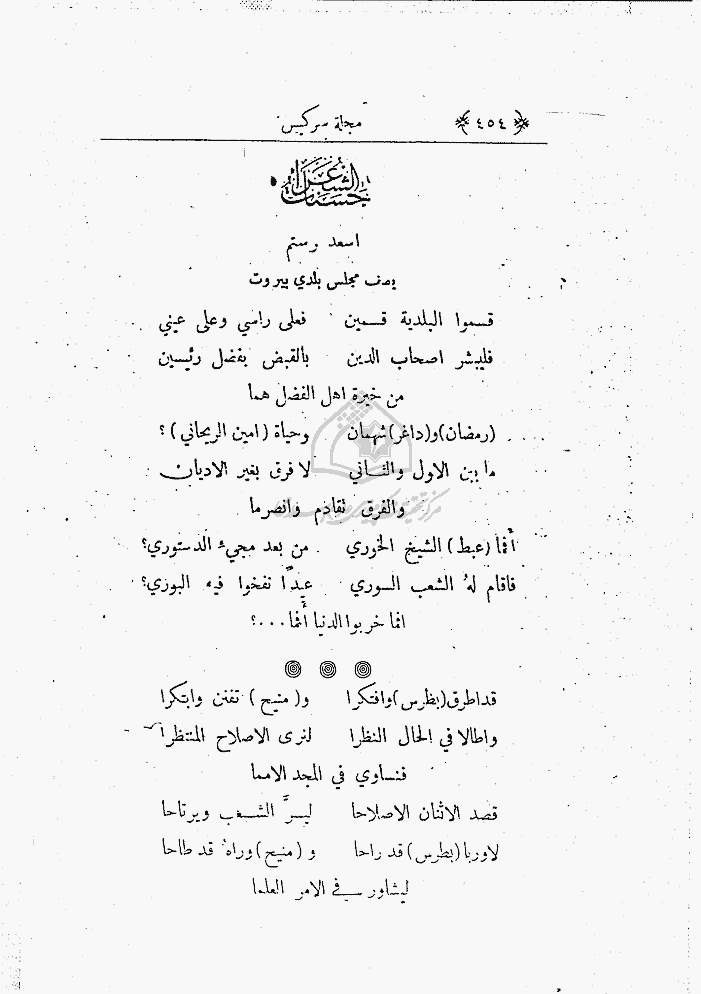 ﴿ ٤٥٤ ﴾ مجلة سركيس
حسنات الشاعر
اسعد رستم
يصف مجلس بلدي بيروت
قسموا البلدية قسمين فعلى راسي وعلى عيني
فليبشر اصحاب الدين بالقبض بفضل رئيسين
من خيرة اهل الفضل هما
(رمضان) و(داغر) شهمان وحياة (امين الريحاني) ؟
ما بين الاول والثاني لا فرق بغير الاديان
والفرق تقادم وانصرما
أفما (عبط) الشيخ الخوري من بعد مجيء الدستوري؟
فاقام لهُ الشعب السوري عيداً نفخوا فيه البوري؟
افما خربوا الدنيا أفما . . .؟
قد اطرق (بطرس) وافتكرا و( منيح ) تفنن وابتكرا
واطالا في الحال النظرا لنرى الاصلاح المنتظرا
فنساوي في المجد الامما
قصد الاثنان الاصلاحا ليسرَّ الشعب ويرتاحا
لاوربا (بطرس) قد راحا و (منيح) وراهُ قد طاحا
ليشاور في الامر العلما